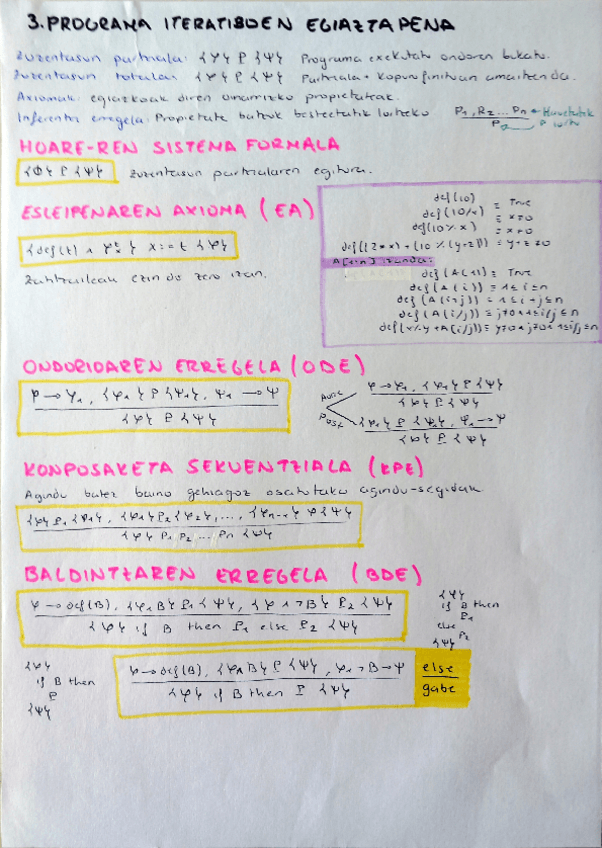 3. PROGRAMA ITERATIBOEN EGIAZTAPENA
Zuzentasun partziala: {φ} P {ψ} Programa exekutatu ondoren bukatu.
Zuzentasun totala: {φ} P {ψ} Partziala + kopuru finituan amaitzen da.
Axiomak: egiazkoak diren oinarrizko propietateak.
Inferentzi erregela: Propietate batzuk besteetatik lortzeko
P1, P2 ... Pn ← Hauetatik
P0 ← P lortu
HOARE-REN SISTEMA FORMALA
{φ} P {ψ} Zuzentasun partzialaren egitura.
ESLEIPENAREN AXIOMA (EA)
{def(t) ∧ φ^t_x} x := t {φ}
Zatitzaileak ezin du zero izan.
def(10) ≡ True
def(10/x) ≡ x≠0
def(10 % x) ≡ x≠0
def((2*x) + (10 % (y+z))) ≡ y+z≠0
A[1..n] izanda:
def(A(1)) ≡ True
def(A(i)) ≡ 1≤i≤n
def(A(i+j)) ≡ 1≤i+j≤n
def(A(i/j)) ≡ j≠0 ∧ 1≤i/j≤n
def(x/y + A(i/j)) ≡ y≠0 ∧ j≠0 ∧ 1≤i/j≤n
ONDORIOAREN ERREGELA (ODE)
φ → φ1, {φ1} P {ψ1}, ψ1 → ψ
{φ} P {ψ}
Aurre
φ → φ1, {φ1} P {ψ}
{φ} P {ψ}
Post
{φ} P {ψ1}, ψ1 → ψ
{φ} P {ψ}
KONPOSAKETA SEKUENTZIALA (KPE)
Agindu batez baino gehiagoz osatutako agindu-segidak
{φ} P1 {φ1}, {φ1} P2 {φ2}, ..., {φn-1} P {ψ}
{φ} P1 P2 ... Pn {ψ}
BALDINTZAREN ERREGELA (BDE)
φ → def(B), {φ ∧ B} P1 {ψ}, {φ ∧ ¬B} P2 {ψ}
{φ} if B then P1 else P2 {ψ}
{φ}
if B then
P1
else
P2
{ψ}
{φ}
if B then
P
{ψ}
φ → def(B), {φ ∧ B} P {ψ}, φ ∧ ¬B → ψ
{φ} if B then P {ψ}
else
gabe